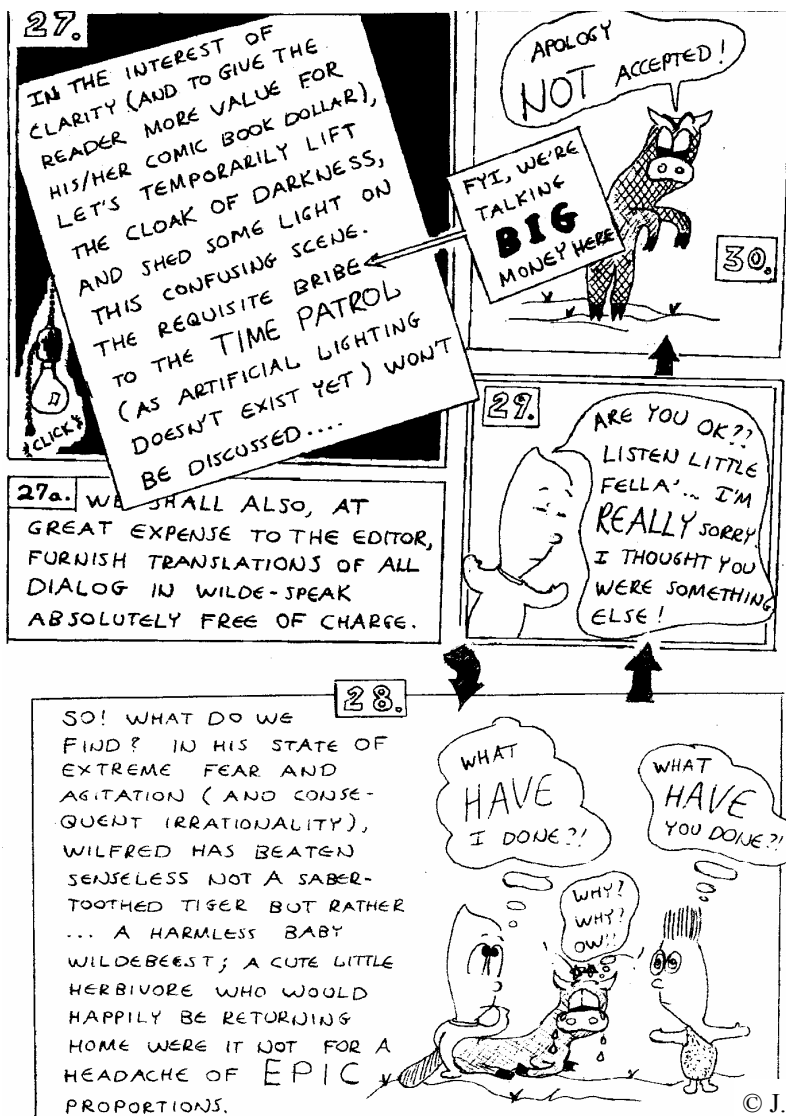 27.
IN THE INTEREST OF
CLARITY (AND TO GIVE THE
READER MORE VALUE FOR
HIS/HER COMIC BOOK DOLLAR),
LET'S TEMPORARILY LIFT
THE CLOAK OF DARKNESS,
AND SHED SOME LIGHT ON
THIS CONFUSING SCENE.
THE REQUISITE BRIBE
TO THE TIME PATROL
(AS ARTIFICIAL LIGHTING
DOESN'T EXIST YET) WON'T
BE DISCUSSED....
FYI, WE'RE
TALKING
BIG
MONEY HERE
CLICK
27a. WE SHALL ALSO, AT
GREAT EXPENSE TO THE EDITOR,
FURNISH TRANSLATIONS OF ALL
DIALOG IN WILDE-SPEAK
ABSOLUTELY FREE OF CHARGE.
28.
SO! WHAT DO WE
FIND? IN HIS STATE OF
EXTREME FEAR AND
AGITATION (AND CONSE-
QUENT IRRATIONALITY),
WILFRED HAS BEATEN
SENSELESS NOT A SABER-
TOOTHED TIGER BUT RATHER
... A HARMLESS BABY
WILDEBEEST; A CUTE LITTLE
HERBIVORE WHO WOULD
HAPPILY BE RETURNING
HOME WERE IT NOT FOR A
HEADACHE OF EPIC
PROPORTIONS.
WHAT
HAVE
I DONE?!
WHY?
WHY?
OW!!
WHAT
HAVE
YOU DONE?!
29.
ARE YOU OK??
LISTEN LITTLE
FELLA'... I'M
REALLY SORRY.
I THOUGHT YOU
WERE SOMETHING
ELSE!
30.
APOLOGY
NOT ACCEPTED!
© J.